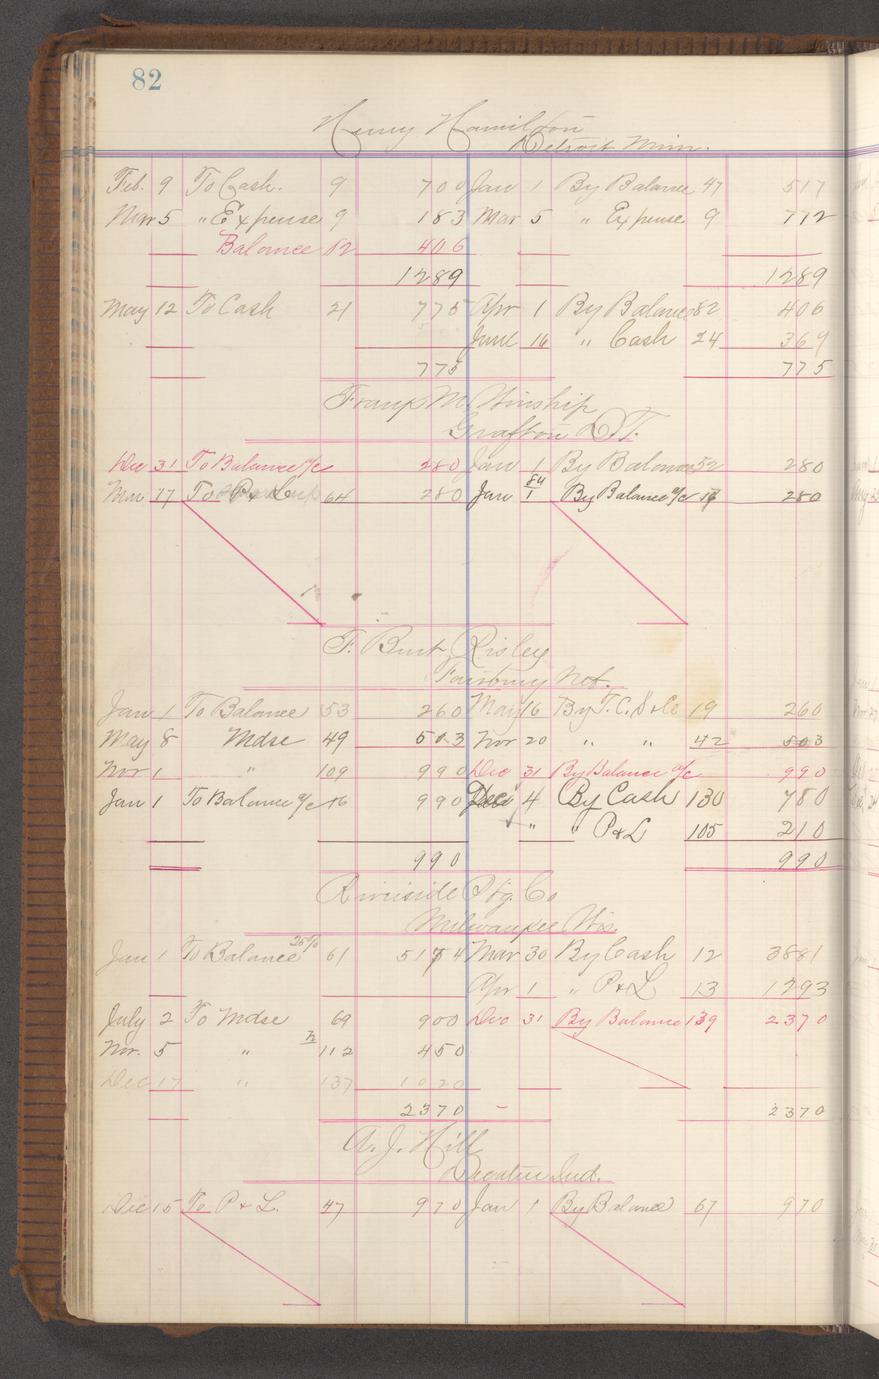 82
Henry Hamilton
Detroit Minn.
Feb. 9 To Cash. 9 700 Jan 1 By Balance 47 517
Mar 5 " Expense 9 183 Mar 5 " Expense 9 772
Balance 82 406
1289 1289
May 12 To Cash 21 775 Apr 1 By Balance 82 406
June 16 " Cash 24 369
775 775
Frank M. Winship
Grafton D.T.
Dec 31 To Balance a/c 280 Jan 1 By Balance 52 280
Mar 17 To P & L 64 280 Jan 84/1 By Balance a/c 17 280
F. Burt Risley
Fairbury Neb.
Jan 1 To Balance 53 260 May 16 By F.C.S & Co 19 260
May 8 Mdse 49 503 Nov 20 " " 42 503
Nov 1 " 109 990 Dec 31 By Balance a/c 990
Jan 1 To Balance a/c 16 990 Dec 4 By Cash 130 780
" " P & L 105 210
990 990
Riverside Ptg. Co
Milwaukee Wis.
Jan 1 To Balance 25% 61 5174 Mar 30 By Cash 12 3881
Apr 1 " P & L 13 1293
July 2 To Mdse 69 900 Dec 31 By Balance 139 2370
Nov. 5 " 112 450
Dec 17 " 137 1020
2370 2370
A. J. Hill
Decatur Ind.
Dec 15 To P & L. 47 970 Jan 1 By Balance 67 970